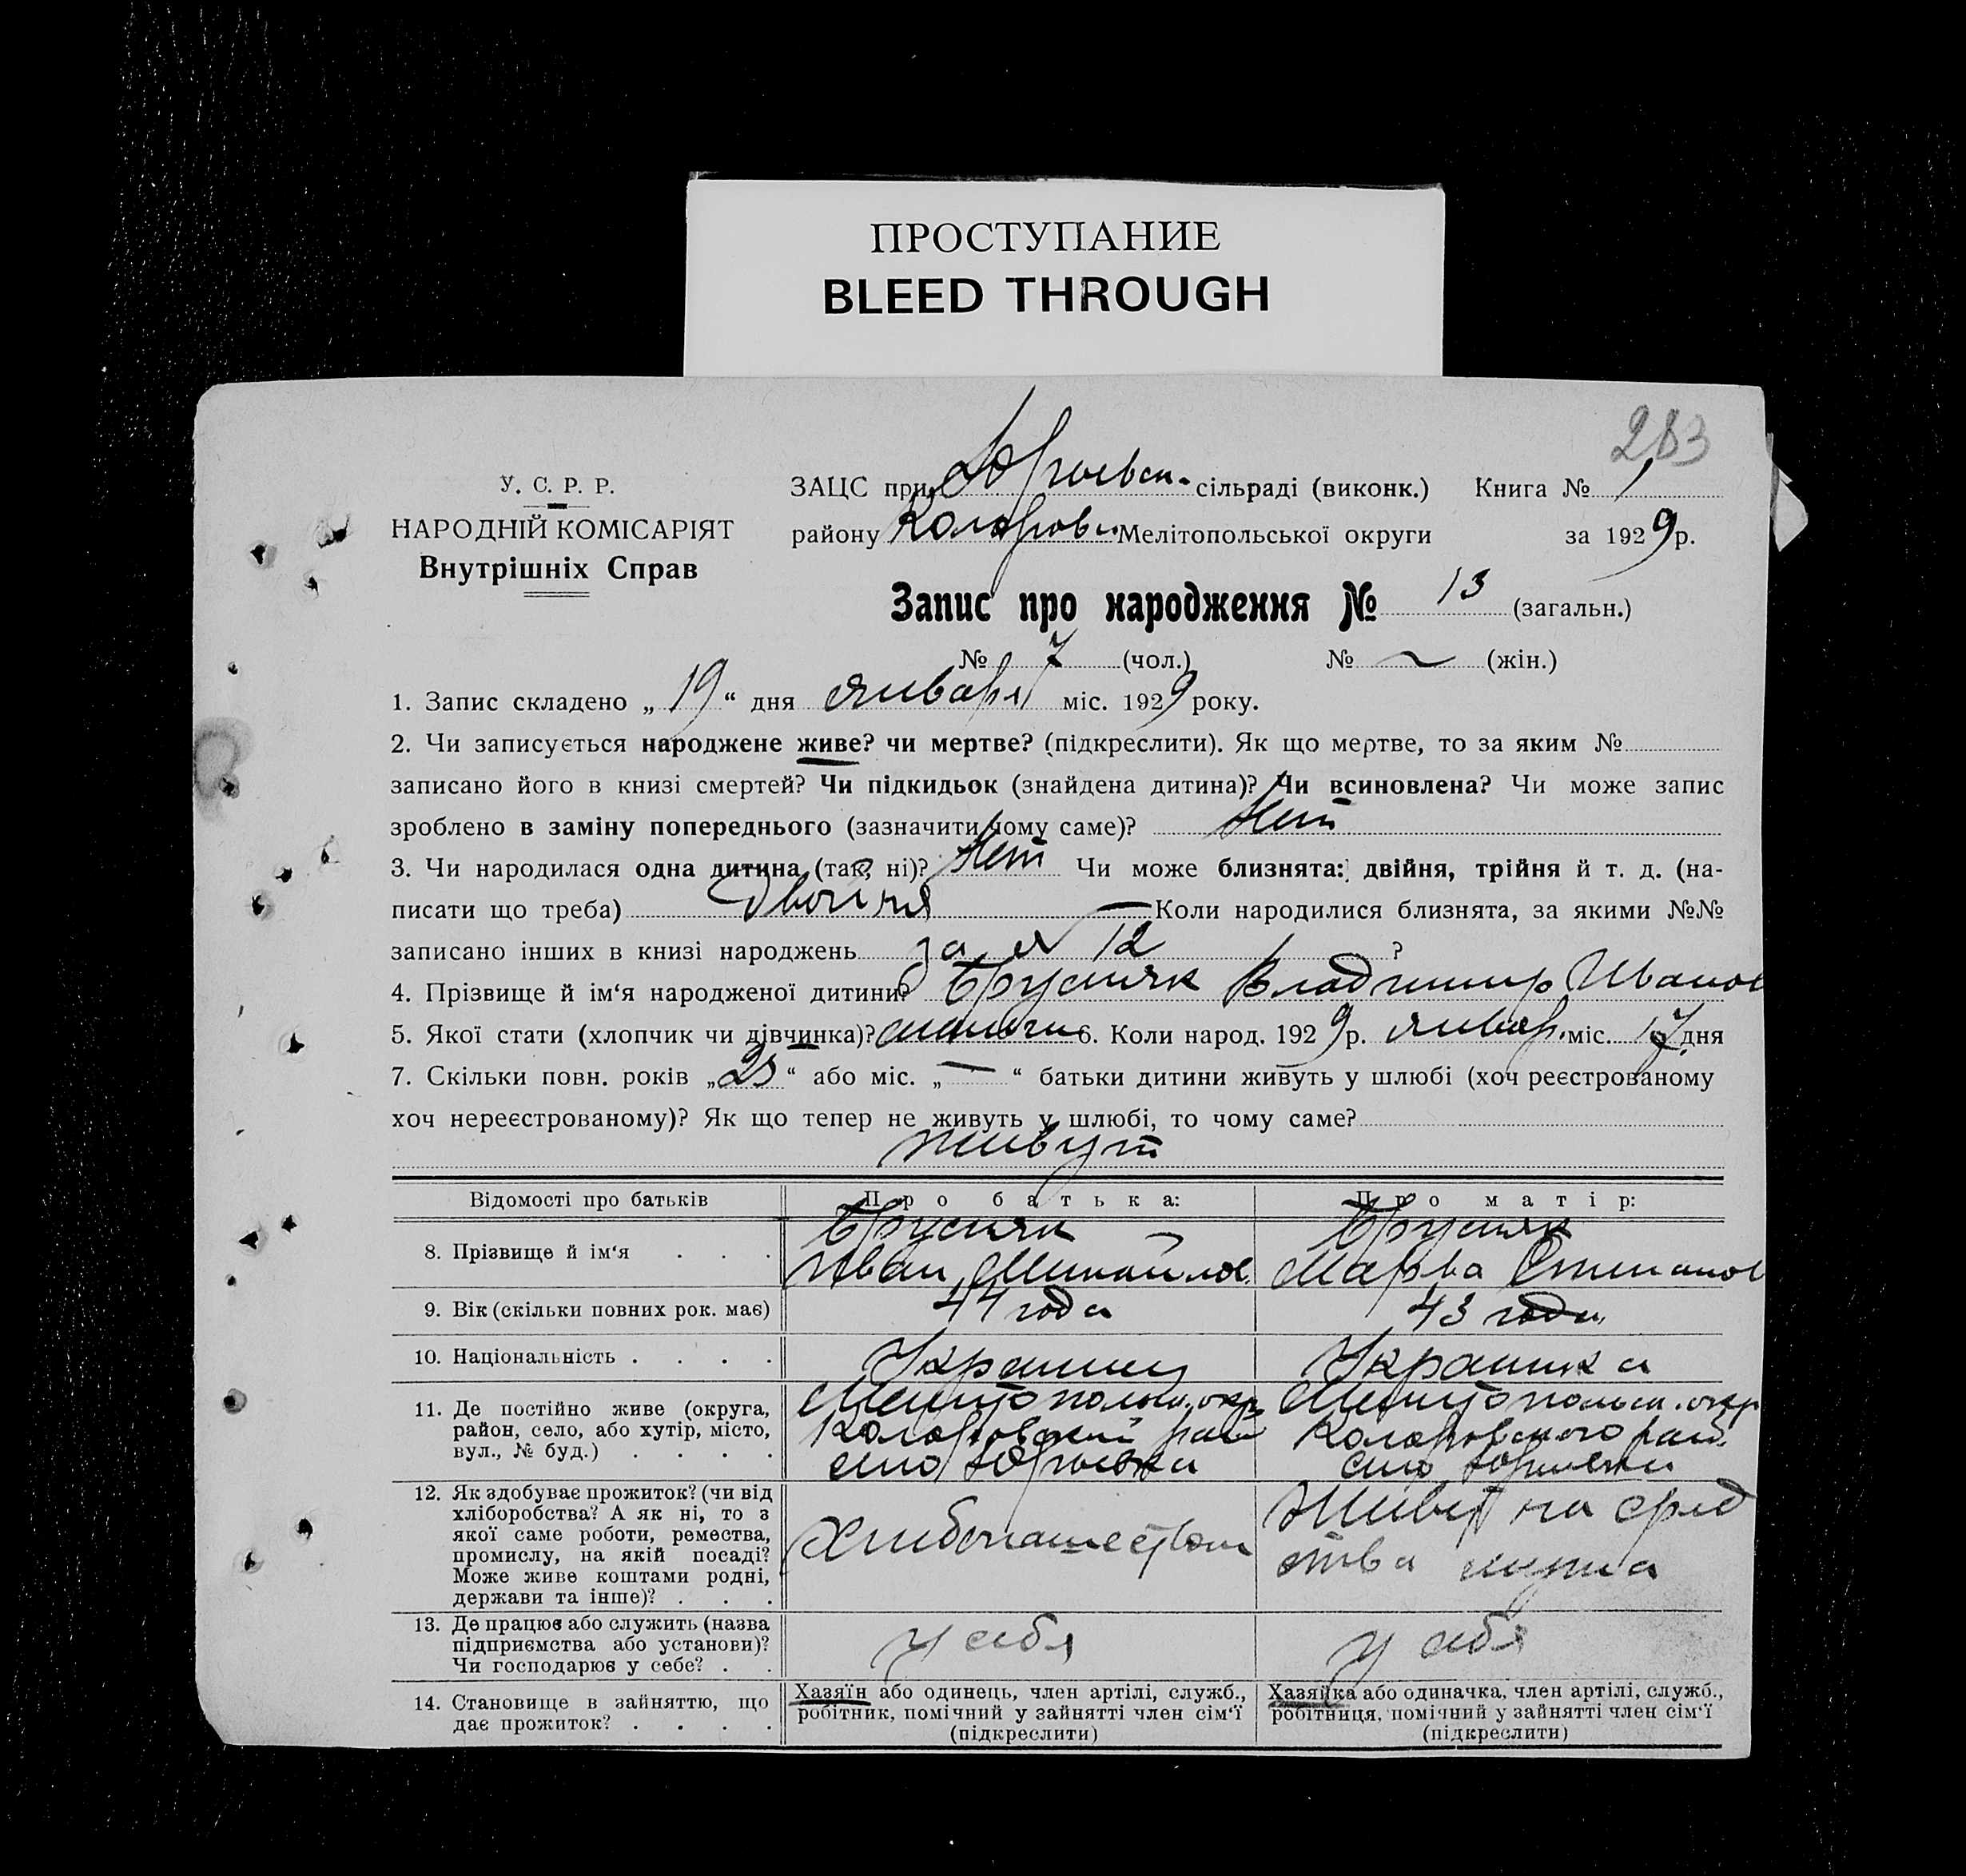 ПРОСТУПАНИЕ
BLEED THROUGH
283
У. С. Р. Р.
НАРОДНІЙ КОМІСАРІЯТ
Внутрішніх Справ
ЗАЦС при Юрьевск. сільраді (виконк.) Книга № 1
району Коларовск. Мелітопольської округи за 1929 р.
Запис про народження № 13 (загальн.)
№ 7 (чол.) № ~ (жін.)
1. Запис складено „ 19 “ дня января міс. 1929 року.
2. Чи записується народжене живе? чи мертве? (підкреслити). Як що мертве, то за яким №
записано його в книзі смертей? Чи підкидьок (знайдена дитина)? Чи всиновлена? Чи може запис
зроблено в заміну попереднього (зазначити чому саме)? Нет
3. Чи народилася одна дитина (так, ні)? Нет Чи може близнята: двійня, трійня й т. д. (на-
писати що треба) Двойня — Коли народилися близнята, за якими №№
записано інших в книзі народжень за № 12 ?
4. Прізвище й ім'я народженої дитини? Брусняк Владимир Иванов
5. Якої стати (хлопчик чи дівчинка)? 6. Коли народ. 1929 р. январ. міс. 17 дня
7. Скільки повн. років „ 25 “ або міс. „ — “ батьки дитини живуть у шлюбі (хоч реєстрованому
хоч нереєстрованому)? Як що тепер не живуть у шлюбі, то чому саме?
живут
Відомості про батьків Про батька: Про матір:
8. Прізвище й ім'я . . . Брусняк Иван Михайлов. Брусняк Марфа Степанов
9. Вік (скільки повних рок. має) 44 года 43 года
10. Національність . . . . Украинец Украинка
11. Де постійно живе (округа,
район, село, або хутір, місто,
вул., № буд.) . . . .
Мелитопольск. окр.
Коларовский рай
село Юрьевка
Мелитопольск. окр
Коларовского рай.
село Юрьевки
12. Як здобуває прожиток? (чи від
хліборобства? А як ні, то з
якої саме роботи, ремества,
промислу, на якій посаді?
Може живе коштами родні,
держави та інше)? . . .
Хлебопашеством
Живет на сред
ства мужа
13. Де працює або служить (назва
підприємства або установи)?
Чи господарює у себе? . .
у себя
у себя
14. Становище в зайняттю, що
дає прожиток? . . . .
Хазяїн або одинець, член артілі, служб.,
робітник, помічний у зайнятті член сім'ї
(підкреслити)
Хазяйка або одиначка, член артілі, служб.,
робітниця, помічний у зайнятті член сім'ї
(підкреслити)